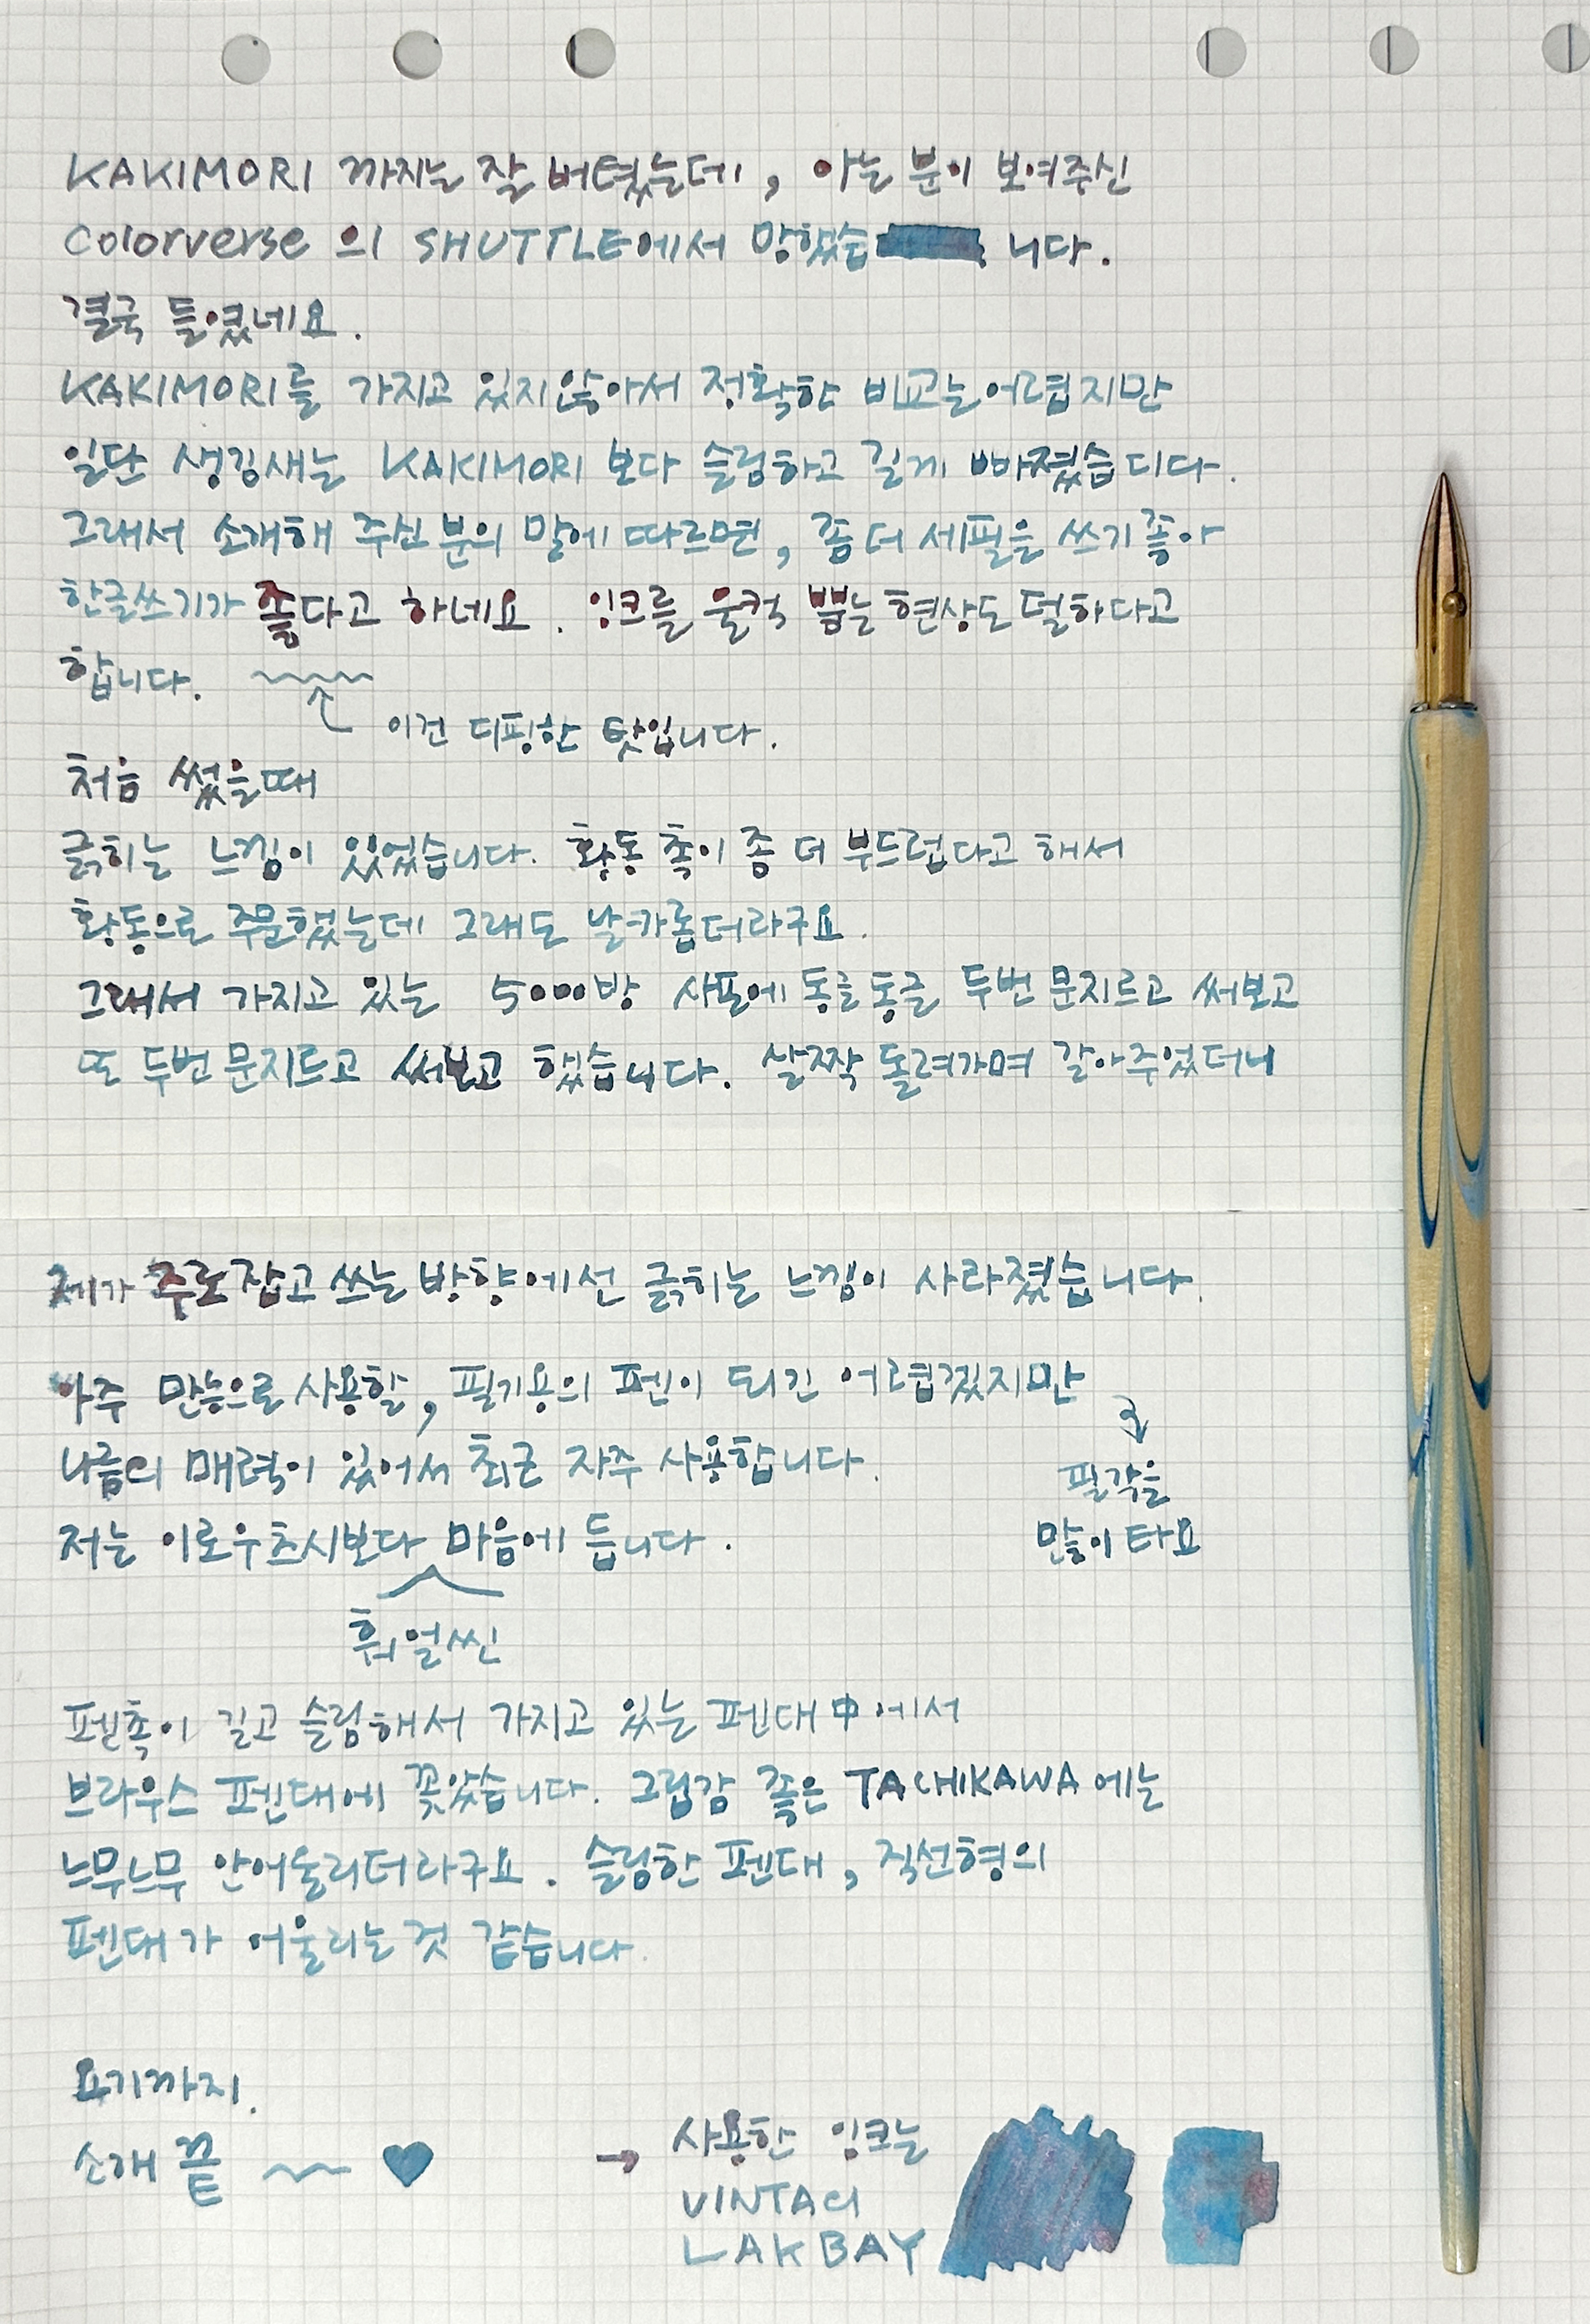 KAKIMORI 까지는 잘 버텼는데, 아는 분이 보여주신
Colorverse 의 SHUTTLE에서 망했습 니다.
결국 들였네요.
KAKIMORI를 가지고 있지않아서 정확한 비교는어렵지만
일단 생김새는 KAKIMORI 보다 슬림하고 길게 빠졌습디다.
그래서 소개해 주신 분의 말에 따르면, 좀 더 세필을 쓰기 좋아
한글쓰기가 좋다고 하네요. 잉크를 울컥 뿜는 현상도 덜하다고
합니다.
이건 디핑한 탓입니다.
처음 썼을때
긁히는 느낌이 있었습니다. 황동 촉이 좀 더 부드럽다고 해서
황동으로 주문했는데 그래도 날카롭더라구요.
그래서 가지고 있는 5000방 사포에 동글동글 두번 문지르고 써보고
또 두번 문지르고 써보고 했습니다. 살짝 돌려가며 갈아주었더니
제가 주로 잡고 쓰는 방향에선 긁히는 느낌이 사라졌습니다.
아주 만능으로 사용할, 필기용의 펜이 되긴 어렵겠지만
필각을
많이 타요
나름의 매력이 있어서 최근 자주 사용합니다.
저는 이로우츠시보다 마음에 듭니다.
훠얼씬
펜촉이 길고 슬림해서 가지고 있는 펜대 中에서
브라우스 펜대에 꽂았습니다. 그립감 좋은 TACHIKAWA 에는
느무느무 안어울리더라구요. 슬림한 펜대, 직선형의
펜대가 어울리는 것 같습니다.
요기까지.
소개 끝
→ 사용한 잉크는
VINTA의
LAKBAY